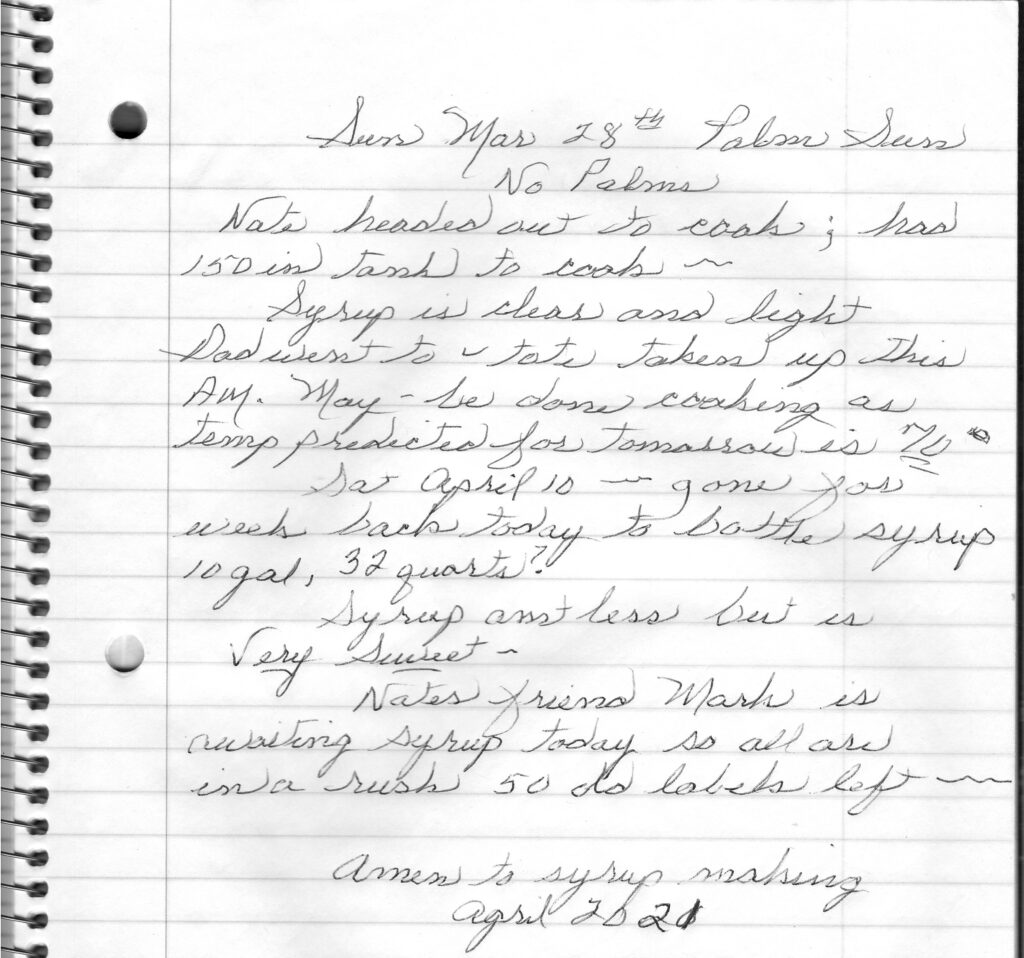 Sun Mar 28th Palm Sun
No Palms
Nate headed out to cook; had
150 in tank to cook ~
Syrup is clear and light
Dad went to ~ tote taken up this
AM. May-be done cooking as
temp predicted for tomorrow is 70°
Sat April 10 ~ gone for
week back today to bottle syrup
10 gal, 32 quarts?
Syrup amt less but is
Very Sweet ~
Nates friend Mark is
awaiting syrup today so all are
in a rush 50 old labels left ~
Amen to syrup making
April 2021